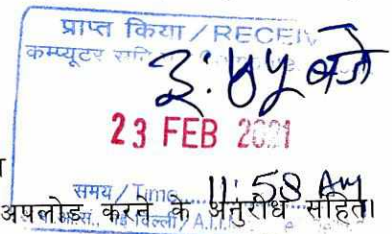 प्राप्त किया / RECEIV
कम्प्यूटर
3:44 बजे
23 FEB 2021
समय / Time 11:58 Am
अपलोड करने के अनुरोध सहित।
दिल्ली / A.I.I.